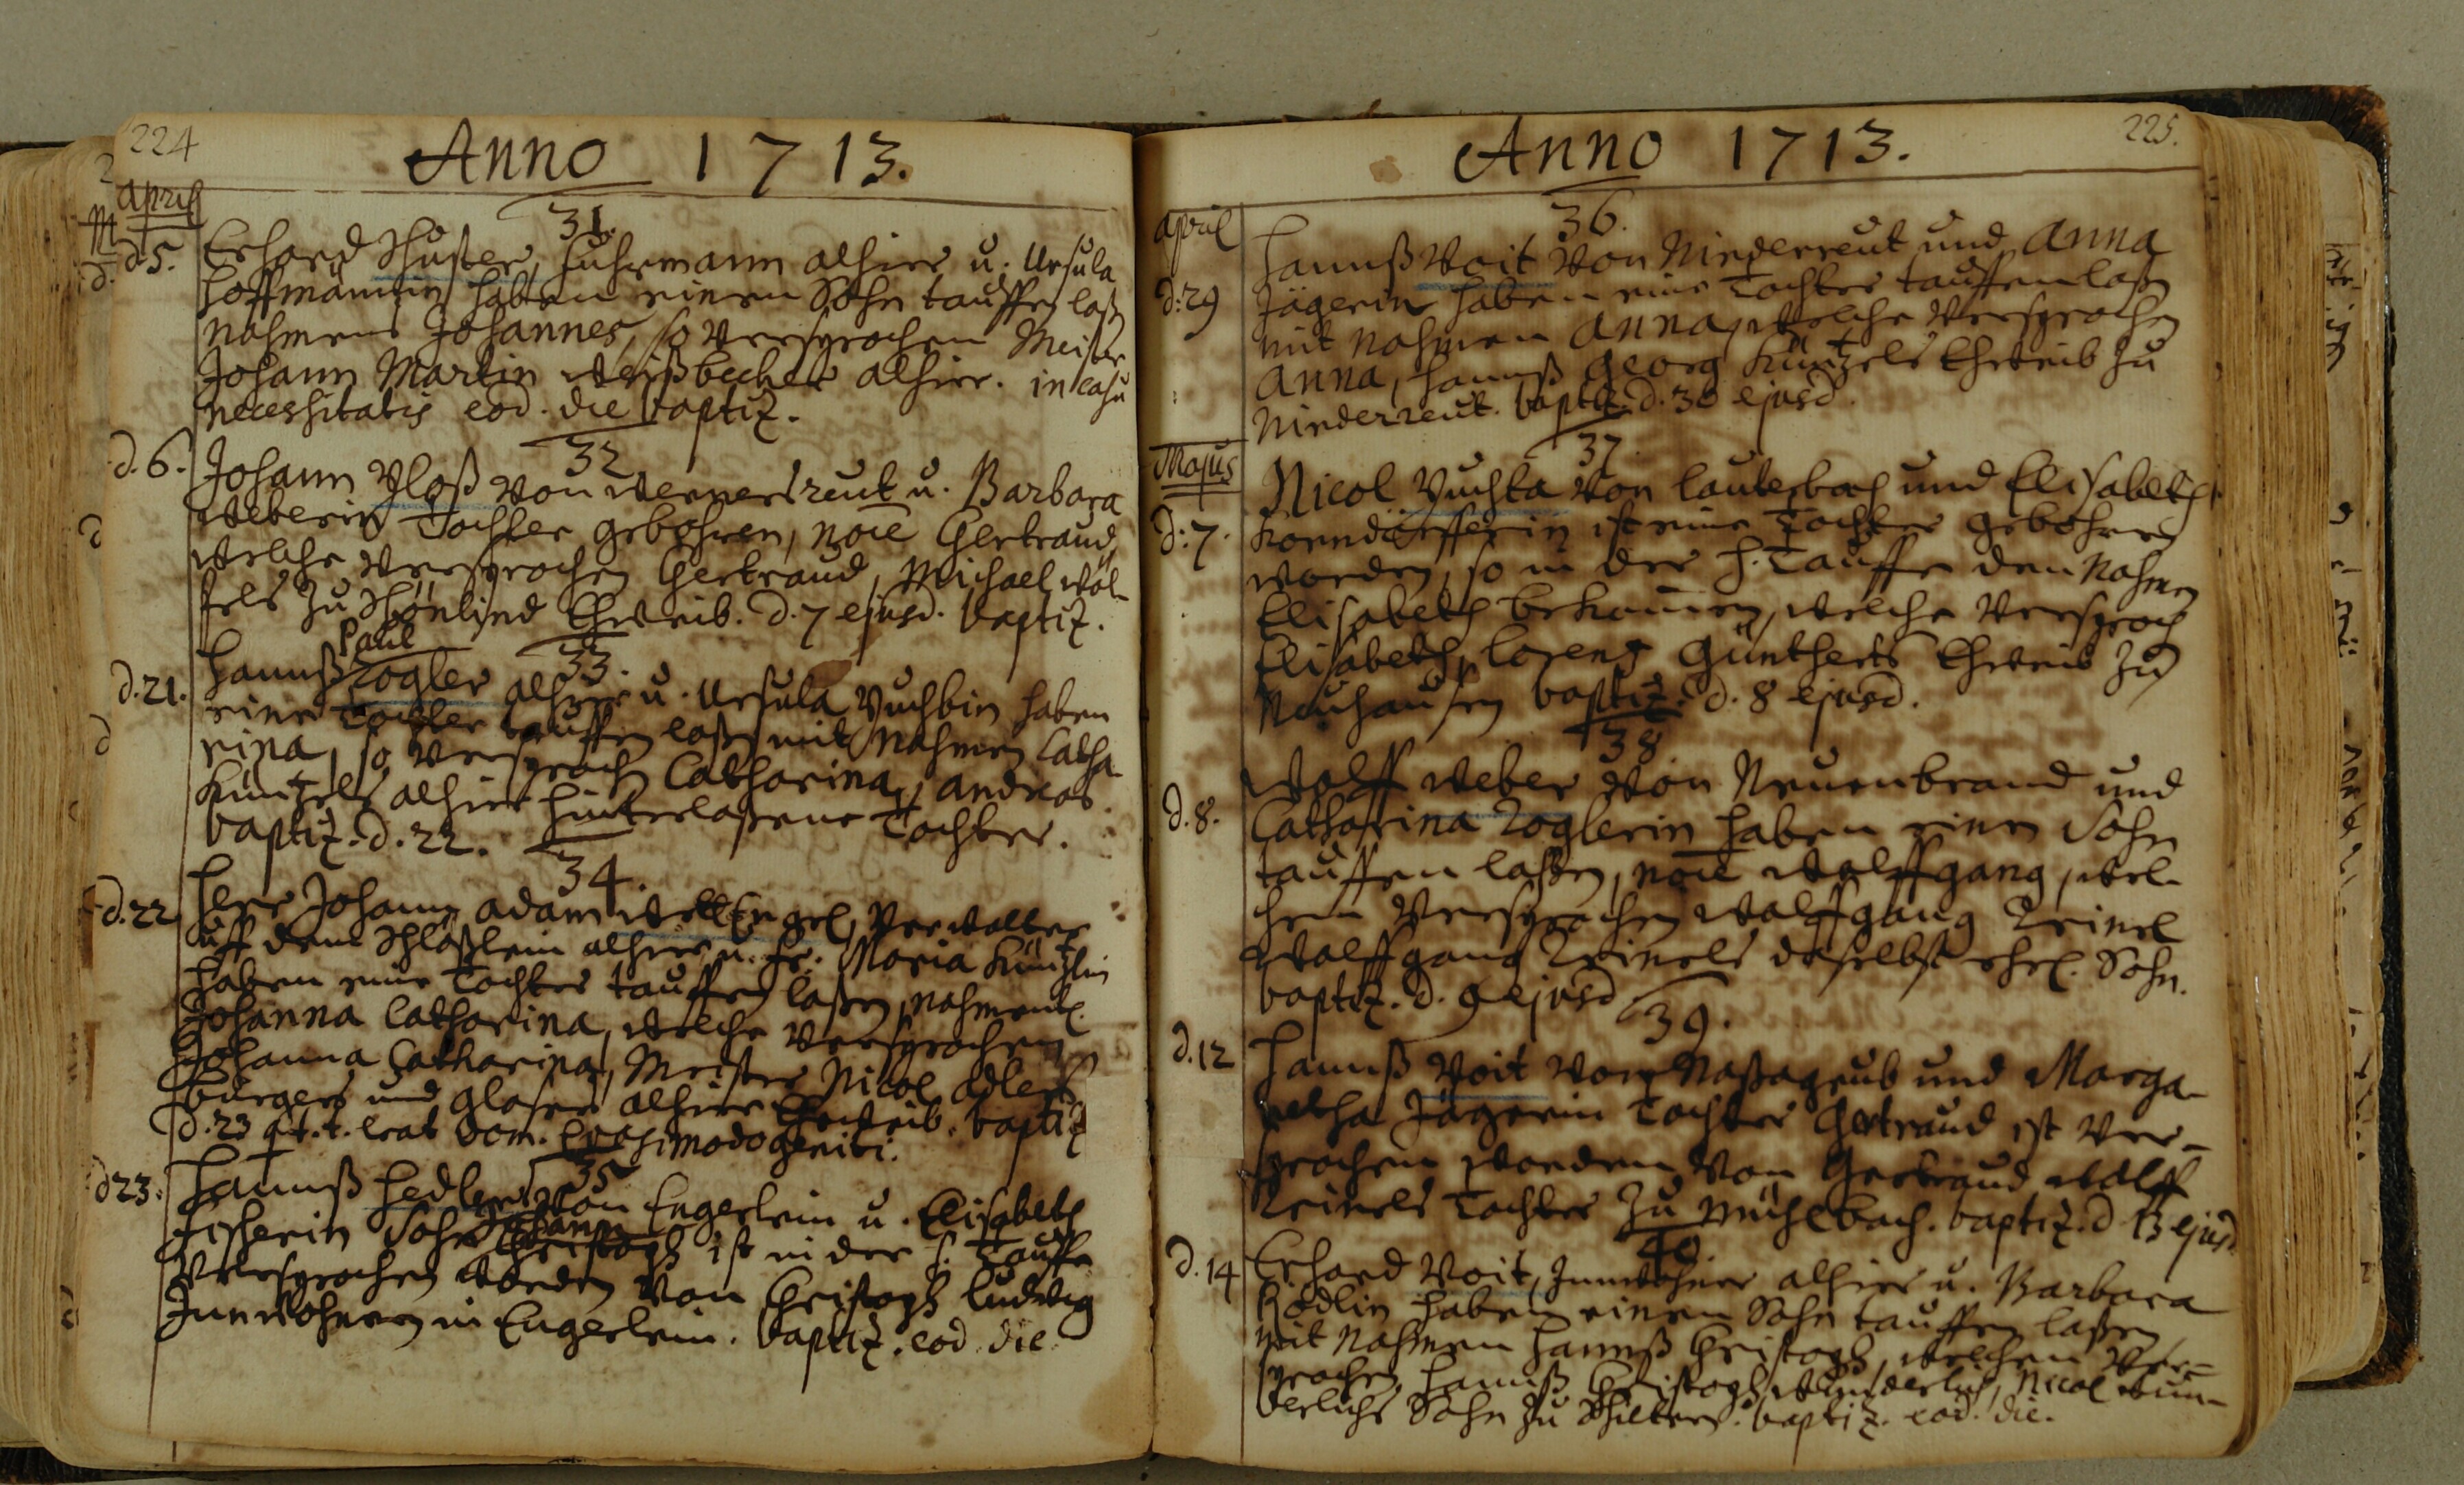 224
Anno 1713.
April
31.
d 5. Erhard Schuster, Fuhrmann alhier u. Ursula
Hoffmännin haben einen Sohn tauffen laßen
Nahmens Johannes, so versprochen Meister
Johann Martin Weißbecker alhier. in casu
necessitatis eod. die baptiz.
32
d. 6. Johann Ploß von Wernersreut u. Barbara
Weberin Tochter gebohren, noie Gertraud,
welche versprochen Gertraud, Michael Wöl-
fels zu Schönlind Eheweib. d. 7 ejusd. baptiz.
33.
Paul
d. 21. Hannß Zogler alhier u. Ursula Puchbin haben
eine Tochter tauffen laßen mit Nahmen Catha-
rina, so versproch Catharina, Andreas
Küntzels alhier hinterlaßene Tochter.
baptiz. d. 22.
34.
d. 22 Herr Johann Adam Engel, Verwalter
uff dem Schlößlein alhier u. Fr. Maria Küntzlin
haben eine Tochter tauffen laßen, nahmentl.
Johanna Catharina, welche versprochen
Johanna Catharina, Meister Nicol Adlers
Bürgers und Glasers alhier Eheweib. baptiz
d. 23 erat Dom. Quasimodogeniti.
35
d 23. Hannß Hedler von Engerlein u. Elisabeth
Johann
Fischerin Sohn Christoph ist in der h. Tauffe
versprochen worden von Christoph Ludwig
Innwohnern in Engerlein. baptiz. eod. die.
225.
Anno 1713.
April
36.
d: 29 Hannß Voit von Niederreut und Anna
Jägerin haben eine Tochter tauffen laßen
mit Nahmen Anna, welche versprochen
Anna, Hannß Georg Küntzels Eheweib zu
Niederreut. baptiz. d. 30 ejusd.
Majus
37.
d: 7. Nicol Puchta von Lauterbach und Elisabeth
Korndörfferin ist eine Tochter gebohren
worden, so in der h. Tauffe den Nahmen
Elisabeth bekommen, welche versproch
Elisabeth, Lorentz Güntherts Eheweib zu
Neuhausen baptiz. d. 8 ejusd.
38
d. 8. Wolff Weber von Neuenbrand und
Catharina Zoglerin haben einen Sohn
tauffen laßen, noie Wolffgang, wel-
chen versprochen Wolffgang Krinel
Wolffgang Krinels daselbst ehel. Sohn.
baptiz. d. 9 ejusd.
39.
d. 12 Hannß Voit von Naßagrub und Marga-
retha Jägerin Tochter Gertraud ist ver-
sprochen worden von Gertraud Wolff
Krinels Tochter zu Mühlbach. baptiz. d 13 ejusd
40.
d. 14 Erhard Voit, Innwohner alhier u. Barbara
Rödlin haben einen Sohn tauffen laßen
mit Nahmen Hannß Christoph, welchen ver-
sprochen Hannß Christoph Wunderlich, Nicol Wun-
derlichs Sohn zu Schiltern. baptiz. eod. die.